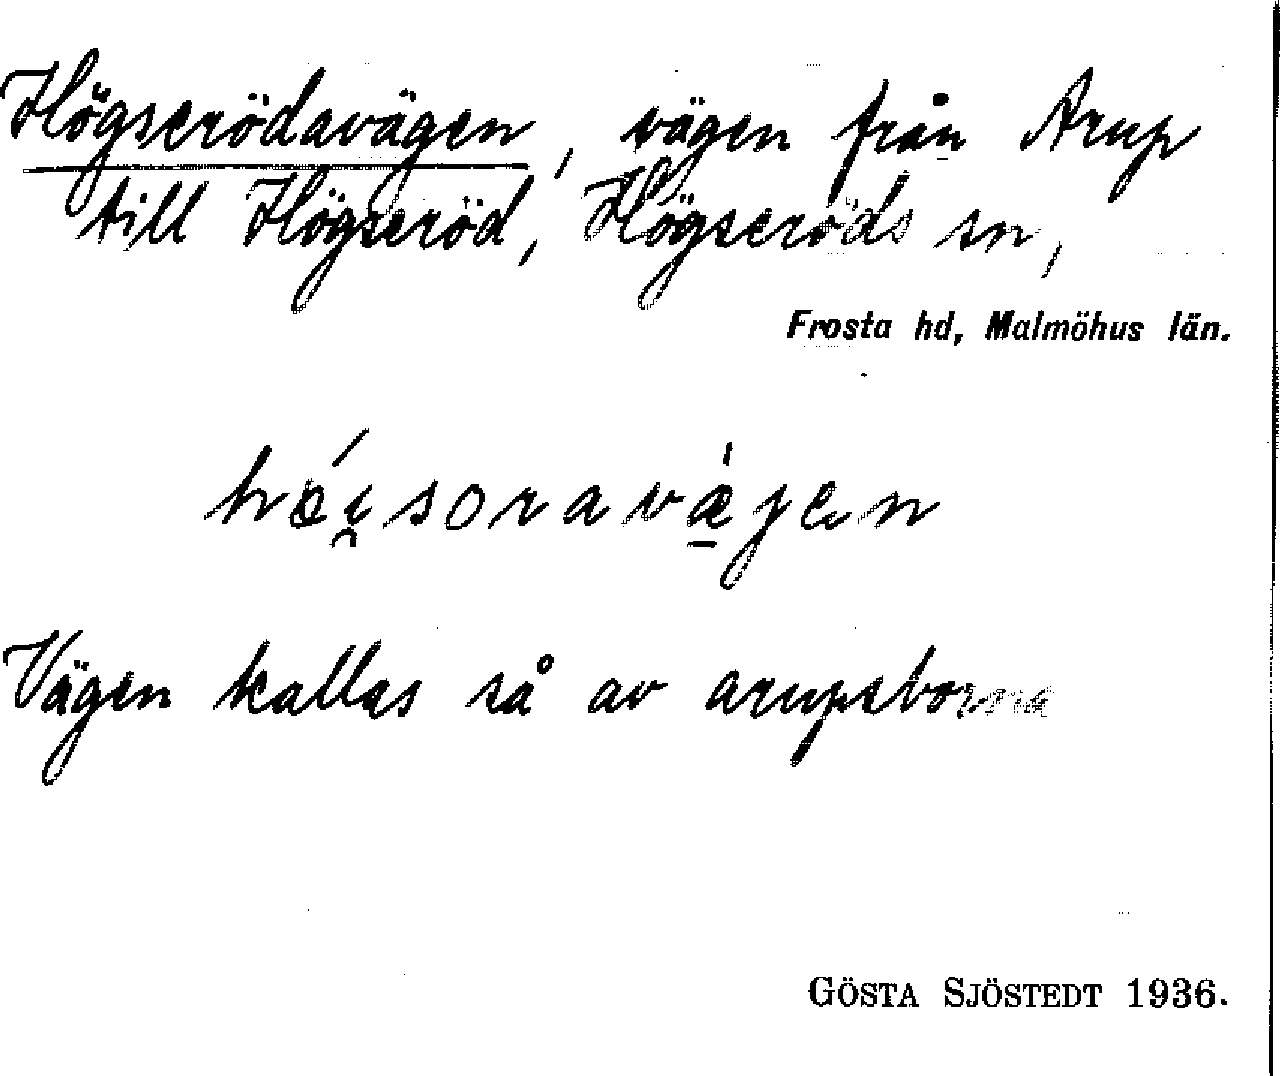 Högserödavägen, vägen från Arup
till Högseröd, Högseröds sn,
Frosta hd, Malmöhus län.
Vägen kallas så av arupsborna
GÖSTA SJÖSTEDT 1936.